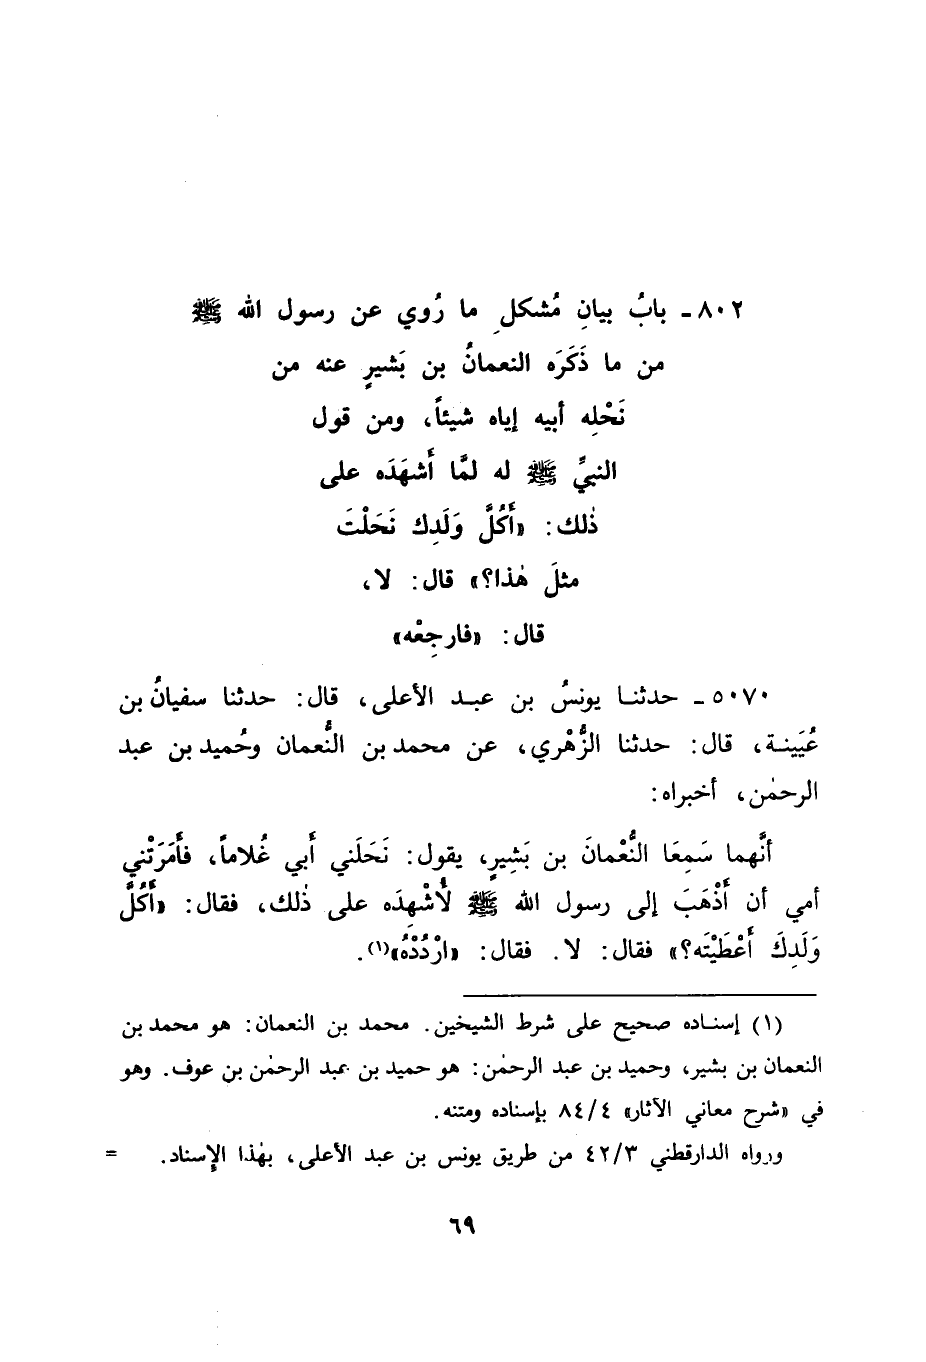 ٨٠٢ـ بابُ بيانِ مُشكلِ ما رُوي عن رسول الله ﷺ
من ما ذَكَرَه النعمانُ بن بَشيرٍ عنه من
نَحْلِه أبيه إياه شيئاً، ومن قول
النبيِّ ﷺ له لمَّا أَشهَدَه على
ذٰلك: «أَكُلَّ وَلَدِك نَحَلْتَ
مثلَ هٰذا؟» قال: لا،
قال: «فارجِعْه»
٥٠٧٠ـ حدثنا يونسُ بن عبد الأعلى، قال: حدثنا سفيانُ بن
عُيَينة، قال: حدثنا الزُّهْري، عن محمد بن النُّعمان وحُميد بن عبد
الرحمٰن، أخبراه:
أنَّهما سَمِعَا النُّعْمانَ بن بَشِيرٍ، يقول: نَحَلَني أَبي غُلاماً، فأَمَرَتْني
أمي أن أَذْهَبَ إلى رسول الله ﷺ لأُشْهِدَه على ذٰلك، فقال: «أَكُلَّ
وَلَدِكَ أَعْطَيْتَه؟» فقال: لا. فقال: «ارْدُدْهُ»(١).
(١) إسناده صحيح على شرط الشيخين. محمد بن النعمان: هو محمد بن
النعمان بن بشير، وحميد بن عبد الرحمٰن: هو حميد بن عبد الرحمٰن بن عوف. وهو
في «شرح معاني الآثار» ٨٤/٤ بإسناده ومتنه.
ورواه الدارقطني ٤٢/٣ من طريق يونس بن عبد الأعلى، بهٰذا الإسناد. =
٦٩